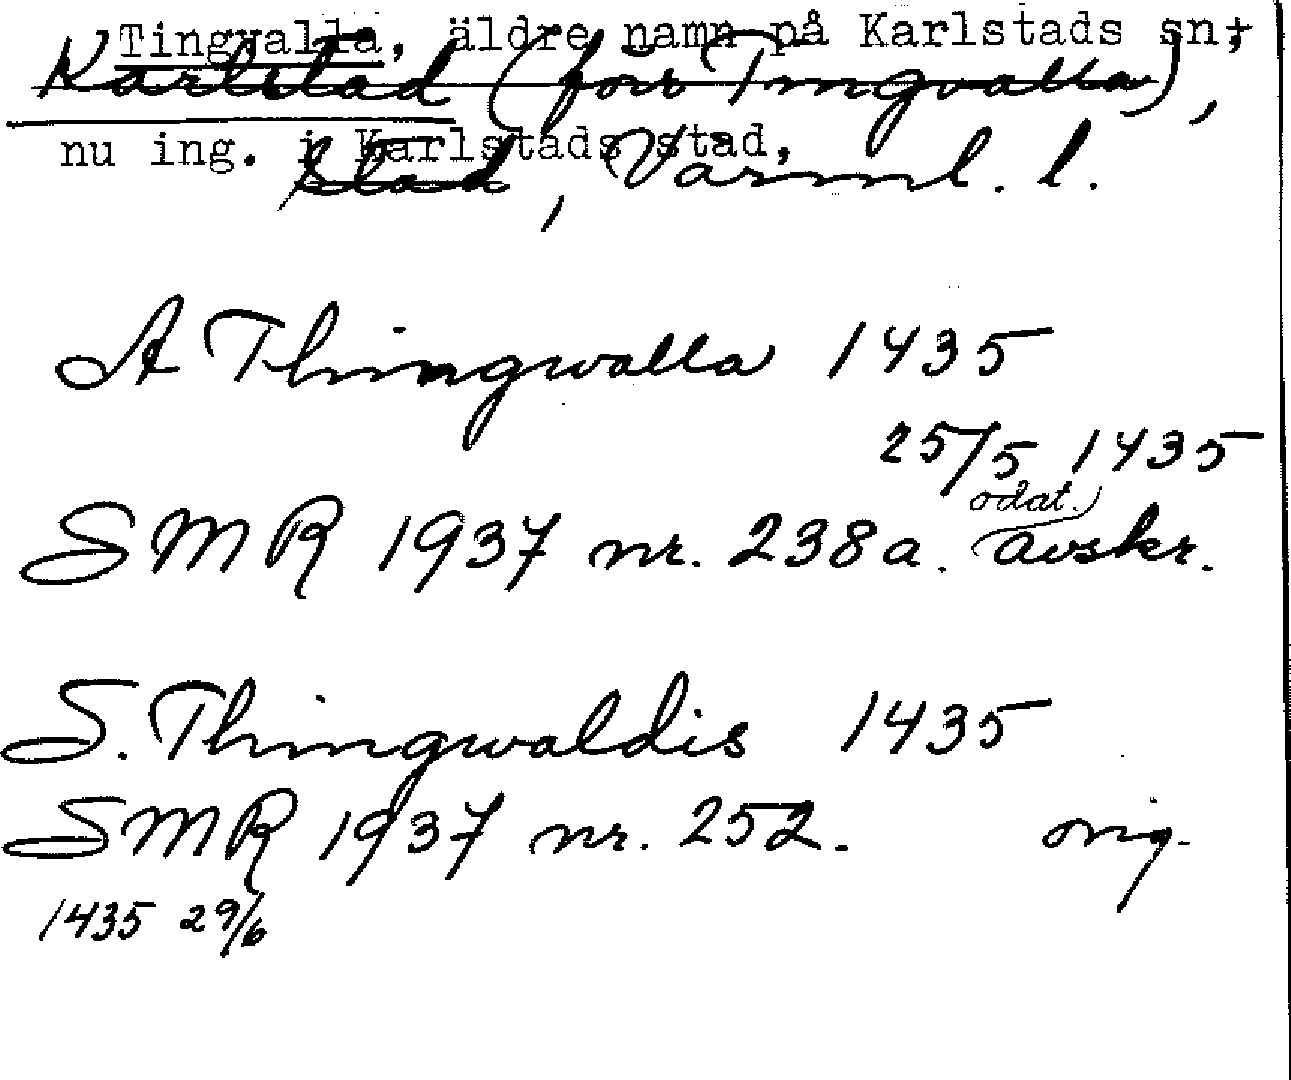 Tingvalla, äldre namn på Karlstads sn,
Karlstad (förr Tingvalla),
nu ing. i Karlstads stad,
stad, Värml. l.
A Thingwalla 1435
25/5 1435
odat.
SMR 1937 nr. 238a. avskr.
S. Thingwaldis 1435
SMR 1937 nr. 252. orig.
1435 29/6